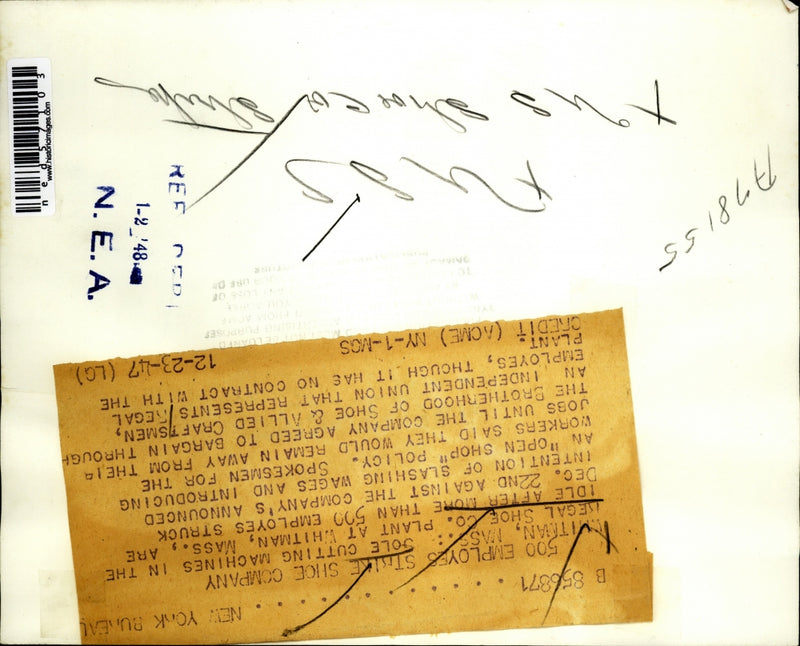 B 856871 . . . . . . . . . . . . NEW YORK BUREAU
500 EMPLOYES STRIKE SHOE COMPANY
WHITMAN, MASS.:: SOLE CUTTING MACHINES IN THE
REGAL SHOE CO. PLANT AT WHITMAN, MASS., ARE
IDLE AFTER MORE THAN 500 EMPLOYES STRUCK
DEC. 22ND AGAINST THE COMPANY'S ANNOUNCED
INTENTION OF SLASHING WAGES AND INTRODUCING
AN "OPEN SHOP" POLICY. SPOKESMEN FOR THE
WORKERS SAID THEY WOULD REMAIN AWAY FROM THEIR
JOBS UNTIL THE COMPANY AGREED TO BARGAIN THROUGH
THE BROTHERHOOD OF SHOE & ALLIED CRAFTSMEN,
AN INDEPENDENT UNION THAT REPRESENTS REGAL
EMPLOYES, THOUGH IT HAS NO CONTRACT WITH THE
PLANT.
CREDIT (ACME) NY-1-MGS 12-23-47 (LG)
A78155
Shoe Co Strike
REF DEPT
1-2-'48
N.E.A.
www.historicimages.com
ned57103